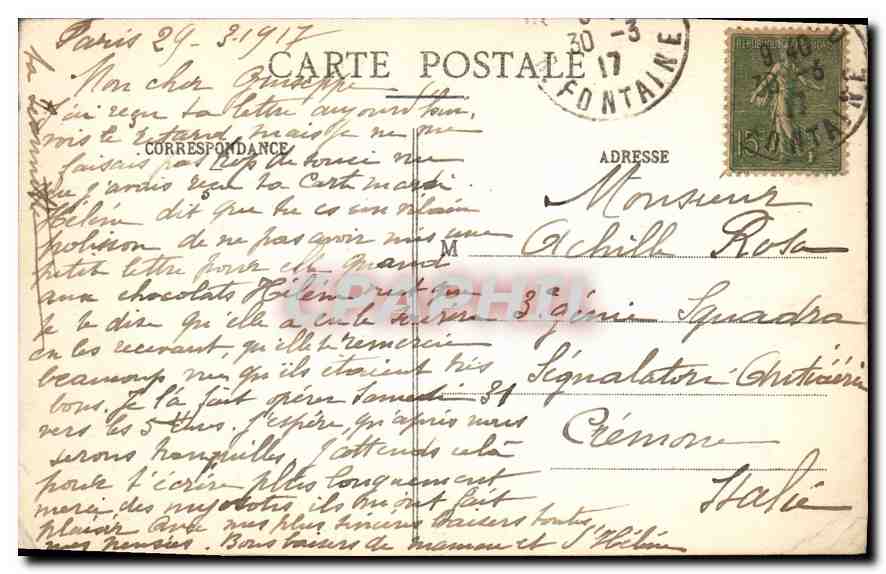 Paris 29-3-1917
CARTE POSTALE
Mon cher Giuseppe
J'ai reçu ta lettre aujourd'hui,
vois le retard, mais je ne me
CORRESPONDANCE
faisais pas trop de souci vu
que j'avais reçu ta carte mardi.
Hélène dit que tu es un vilain
polisson de ne pas avoir mis une
petit lettre pour elle quand
aux chocolats Hélène veut que
je te dise qu'elle a eu le
en les recevant, qu'elle te remercie
beaucoup vu qu'ils étaient très
bons. Je la fait opérer Samedi 31
vers les 5 heures. J'espère, qu'après nous
serons tranquilles. J'attends cela
pour t'écrire plus longuement
merci des ils m'ont fait
plaisir avec mes plus sincères baisers toutes
mes pensées. Bons baisers de maman et d'Hélène
ADRESSE
M
Monsieur
Achille Rosa
3e génie Squadra
Ségnalatori
Crémone
Italie
30 -3
17
FONTAINE
15
CPAPHIL